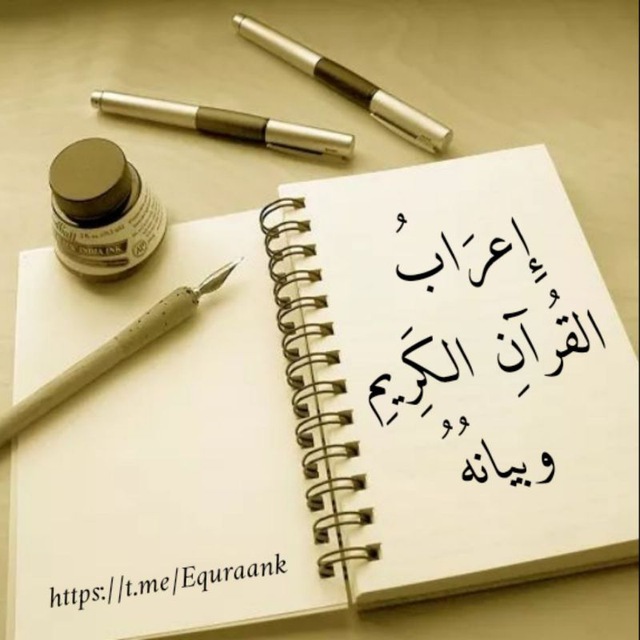 إِعرَابُ
القُرآنِ الكَرِيمِ
وبيانُهُ
https://t.me/Equraank
INDIA INK